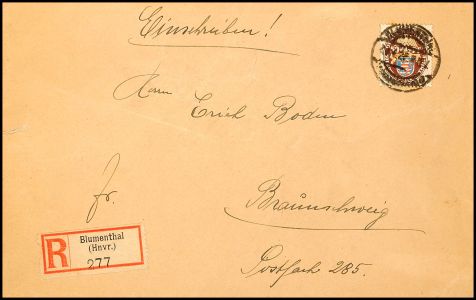 Einschreiben!
Herrn Erich Boden
fr.
Braunschweig
Postfach 285.
R
Blumenthal
(Hnvr.)
277